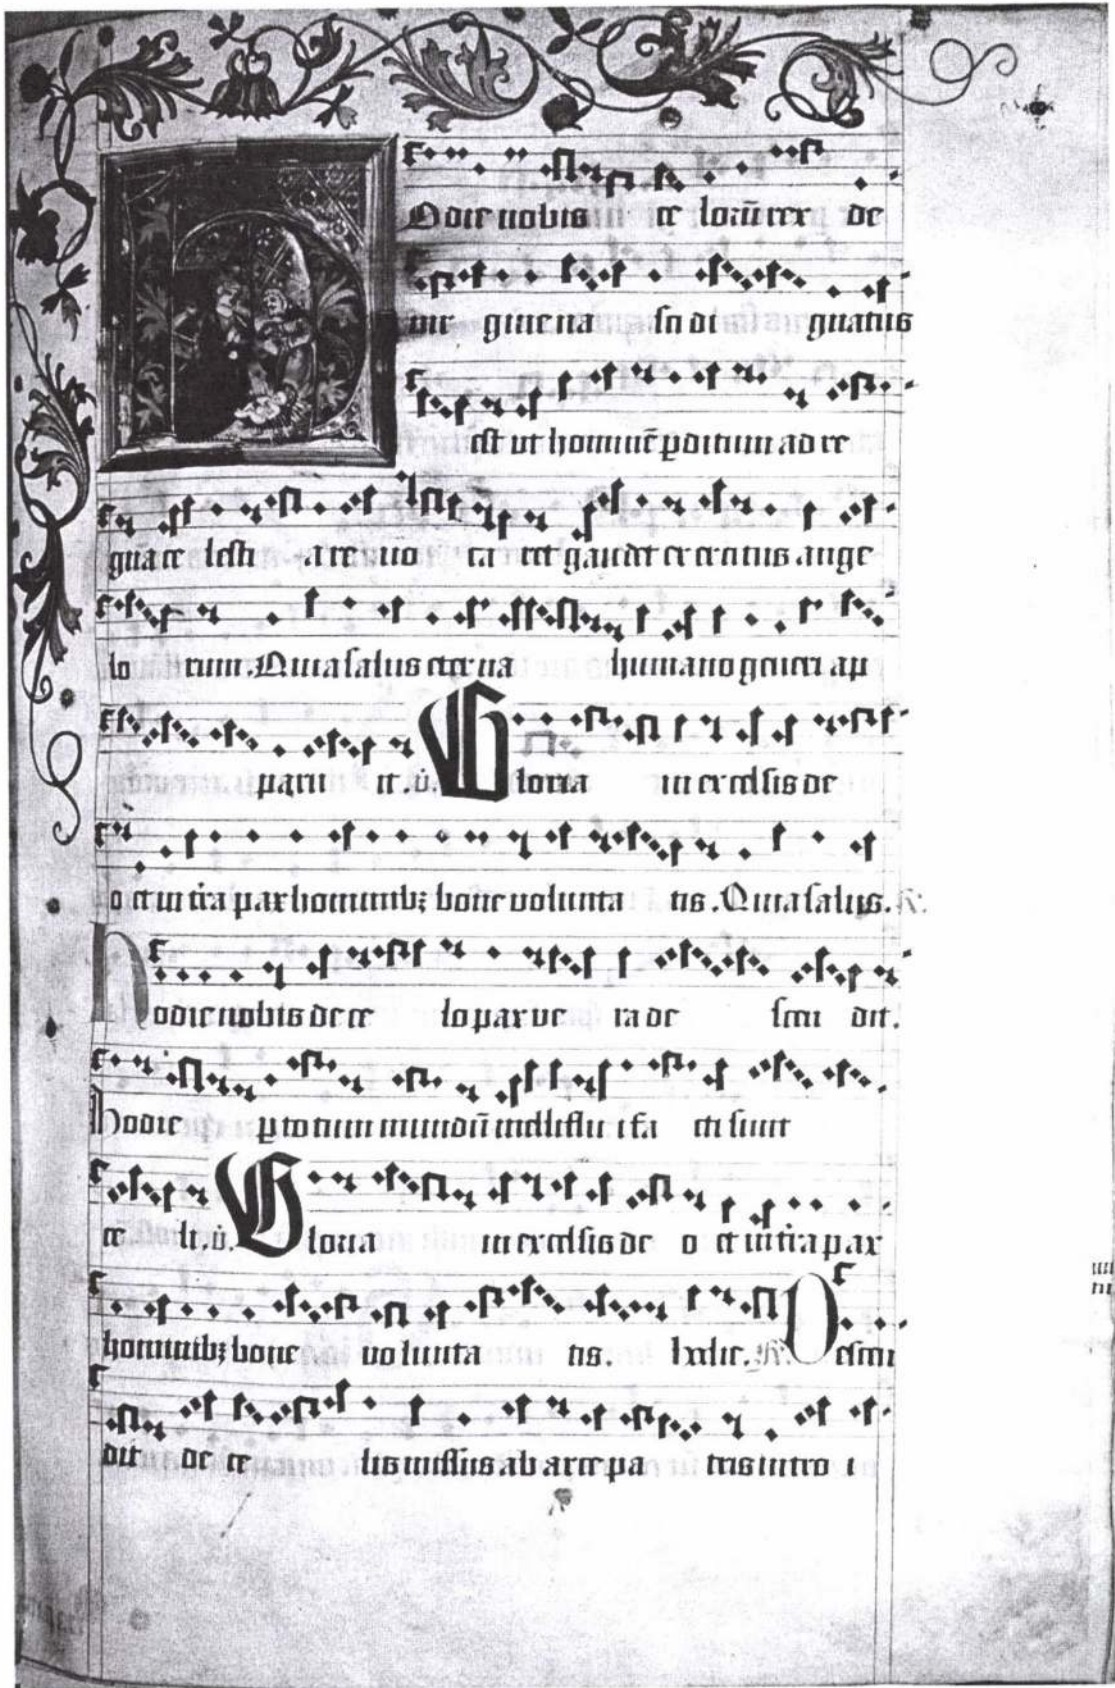 Hodie nobis ce lorū rex de
vir gine na sci di gnatus
est ut hominē p̱ditum ad re
gna ce lesti a re vo ca ret gaudet exercitus ange
lo rum. Quia salus eterna humano generi ap
paru it. v̇. Gloria in excelsis de
o et in tr̄a pax hominibꝫ bone volunta tis. Quia salus. ℟.
Hodie nobis de ce lo pax ve ra de scen dit.
Hodie p̱ totum mundū melliflu i fa cti sunt
ce li. v̇. Gloria in excelsis de o et in tr̄a pax
hominibꝫ bone volunta tis. hodie. ℟. Descen
dit de ce lis missus ab arce pa tris intro i